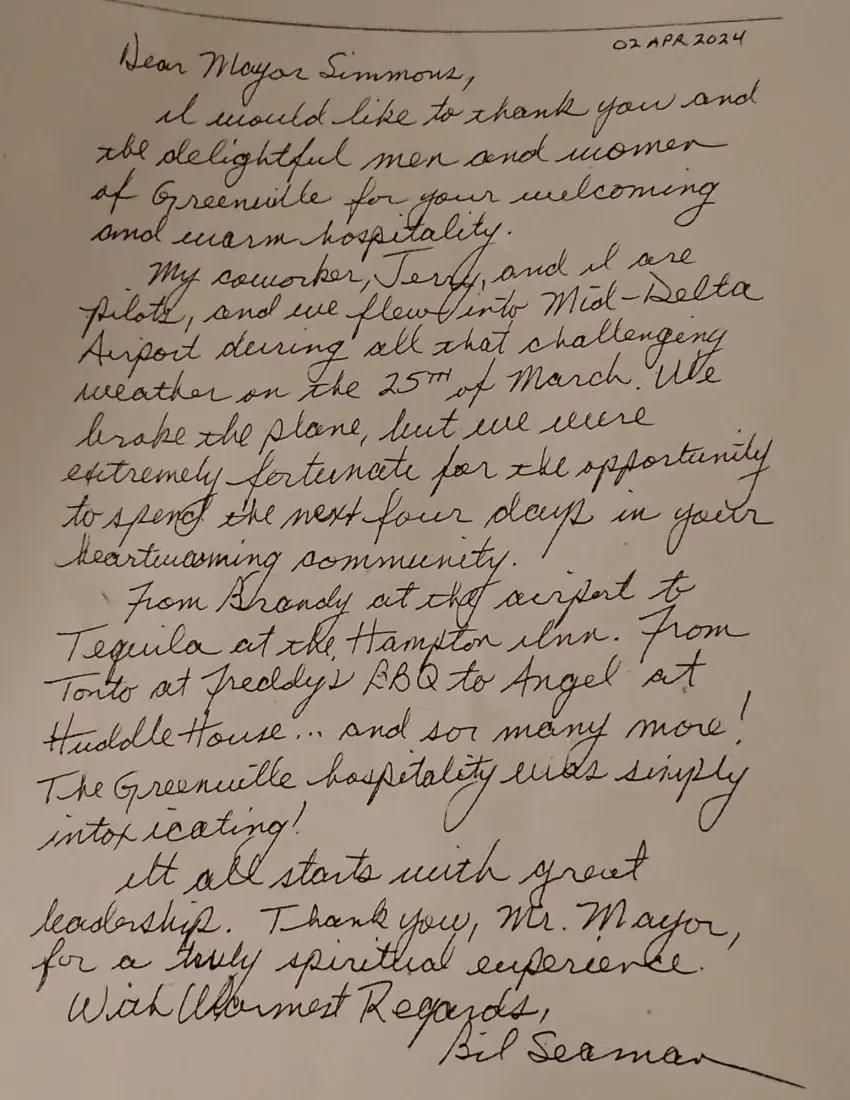 02 APR 2024
Dear Mayor Simmons,
I would like to thank you and
the delightful men and women
of Greenville for your welcoming
and warm hospitality.
My coworker, Jerry, and I are
pilots, and we flew into Mid-Delta
Airport during all that challenging
weather on the 25TH of March. We
broke the plane, but we were
extremely fortunate for the opportunity
to spend the next four days in your
heartwarming community.
From Brandy at the airport to
Tequila at the Hampton Inn. From
Tonto at Freddy's BBQ to Angel at
Huddle House... and so many more!
The Greenville hospitality was simply
intoxicating!
It all starts with great
leadership. Thank you, Mr. Mayor,
for a truly spiritual experience.
With Warmest Regards,
Bil Seaman